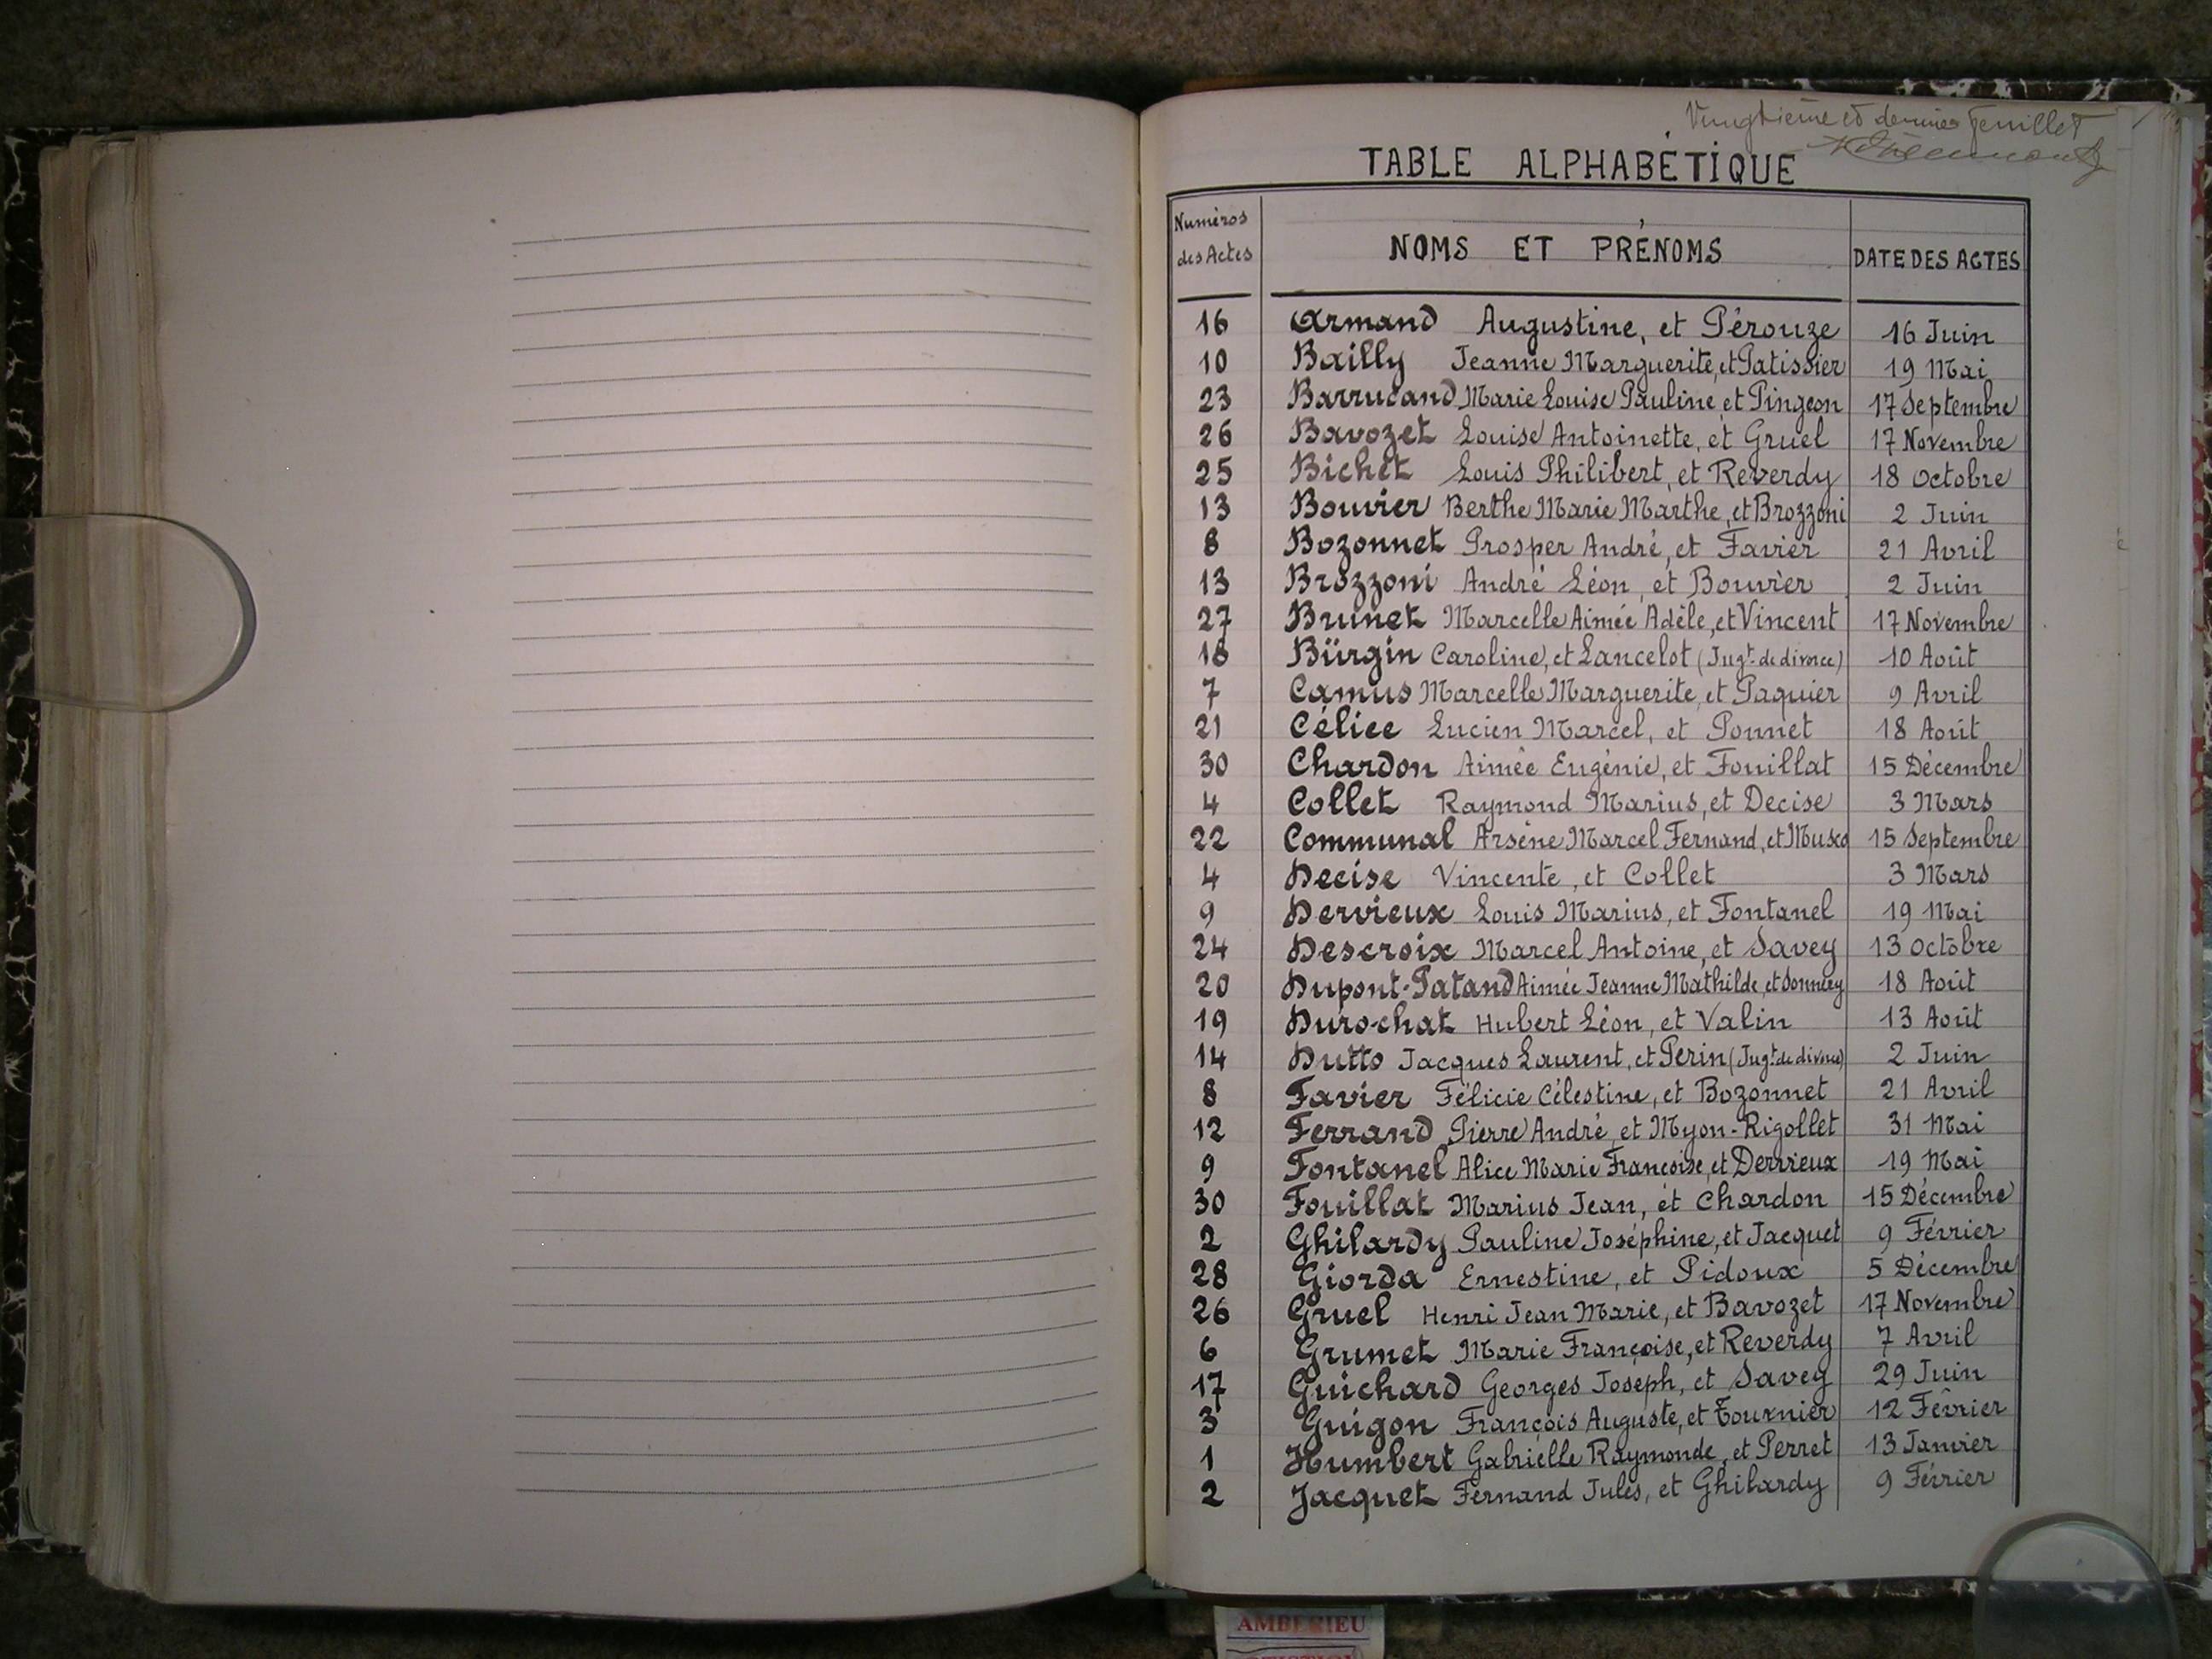 Vingtième et dernier feuillet
TABLE ALPHABÉTIQUE
Numéros des Actes NOMS ET PRÉNOMS DATE DES ACTES
16 Armand Augustine, et Pérouze 16 Juin
10 Bailly Jeanne Marguerite, et Patissier 19 Mai
23 Barrucand Marie Louise Pauline et Pingeon 17 Septembre
26 Bavozet Louise Antoinette, et Gruel 17 Novembre
25 Bichet Louis Philibert, et Reverdy 18 Octobre
13 Bouvier Berthe Marie Marthe, et Brozzoni 2 Juin
8 Bozonnet Prosper André, et Favier 21 Avril
13 Brozzoni André Léon, et Bouvier 2 Juin
27 Brunet Marcelle Aimée Adèle, et Vincent 17 Novembre
18 Bürgin Caroline, et Lancelot (Jugt de divorce) 10 Août
7 Camus Marcelle Marguerite, et Paquier 9 Avril
21 Célice Lucien Marcel, et Ponnet 18 Août
30 Chardon Aimée Eugénie, et Fouillat 15 Décembre
4 Collet Raymond Marius, et Decise 3 Mars
22 Communal Arsène Marcel Fernand, et Musco 15 Septembre
4 Decise Vincente, et Collet 3 Mars
9 Dervieux Louis Marius, et Fontanel 19 Mai
24 Descroix Marcel Antoine, et Savey 13 Octobre
20 Dupont-Patand Aimée Jeanne Mathilde, et 18 Août
19 Durochat Hubert Léon, et Valin 13 Août
14 Dutto Jacques Laurent, et Perin (Jugt de divorce) 2 Juin
8 Favier Félicie Célestine, et Bozonnet 21 Avril
12 Ferrand Pierre André, et Myon-Rigollet 31 Mai
9 Fontanel Alice Marie Françoise, et Dervieux 19 Mai
30 Fouillat Marius Jean, et Chardon 15 Décembre
2 Ghilardy Pauline Joséphine, et Jacquet 9 Février
28 Giorda Ernestine, et Pidoux 5 Décembre
26 Gruel Henri Jean Marie, et Bavozet 17 Novembre
6 Grumet Marie Françoise, et Reverdy 7 Avril
17 Guichard Georges Joseph, et Savey 29 Juin
3 Guigon François Auguste, et Tournier 12 Février
1 Humbert Gabrielle Raymonde, et Perret 13 Janvier
2 Jacquet Fernand Jules, et Ghilardy 9 Février
AMBERIEU